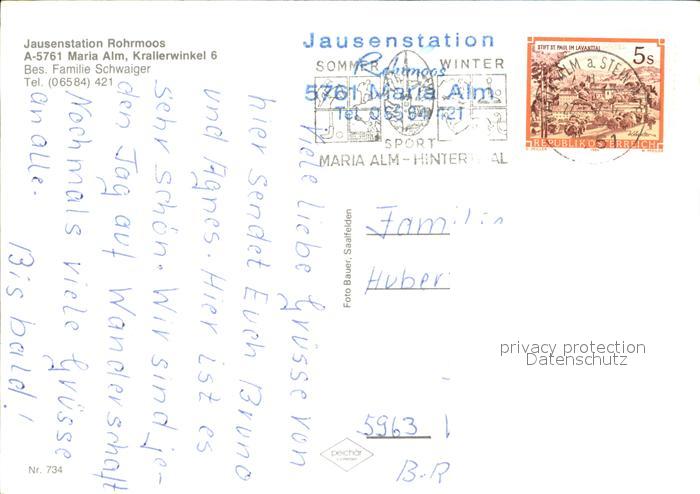 Jausenstation Rohrmoos
A-5761 Maria Alm, Krallerwinkel 6
Bes. Familie Schwaiger
Tel. (06584) 421
Jausenstation
Rohrmoos
5761 Maria Alm
Tel. 06584/421
SOMMER WINTER
SPORT
MARIA ALM-HINTERTHAL
STIFT ST. PAUL IM LAVANTTAL
5s
REPUBLIK ÖSTERREICH
Viele liebe Grüsse von
hier sendet Euch Bruno
und Agnes. Hier ist es
sehr schön. Wir sind je-
den Tag auf Wanderschaft
Nochmals viele Grüsse
an alle.
Bis bald!
Foto Bauer, Saalfelden
Familie
Huber
privacy protection
Datenschutz
5963
B-R
peichär
Nr. 734